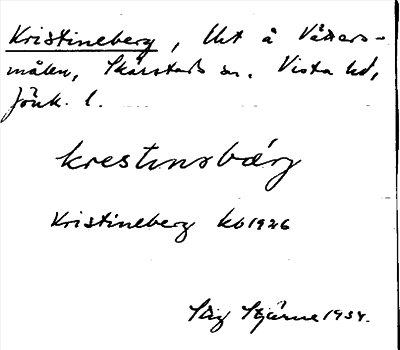 Kristineberg, lht å Våxers-
målen, Skärstads sn. Vista hd,
Jönk. l.
krestɩnsbærj
Kristineberg kb 1926
Stig Stjärne 1934.